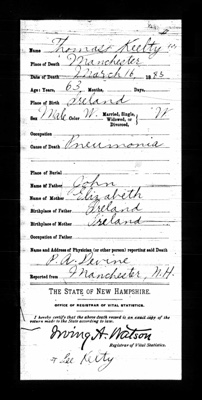 Name Thomas Kielty
Place of Death Manchester
Date of Death March 16, 1893
Age: Years, 63 Months, Days,
Place of Birth Ireland
Sex Male W. Married, Single, Widowed, or Divorced, W
Occupation
Cause of Death Pneumonia
Place of Burial
Name of Father John
Name of Mother Elizabeth
Birthplace of Father Ireland
Birthplace of Mother Ireland
Occupation of Father
Name and Address of Physician (or other person) reporting said Death
P. A. Devine
Reported from Manchester, N.H.
THE STATE OF NEW HAMPSHIRE.
OFFICE OF REGISTRAR OF VITAL STATISTICS.
I hereby certify that the above death record is an exact copy of the return made to the State according to law.
Irving A. Watson
Registrar of Vital Statistics.